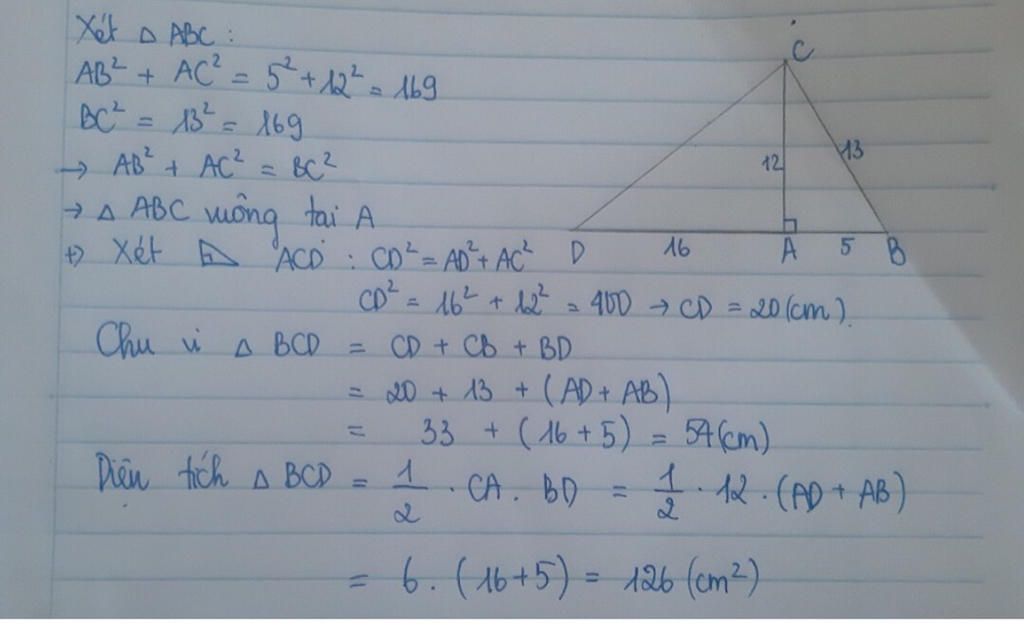 Xét △ ABC :
AB² + AC² = 5² + 12² = 169
BC² = 13² = 169
→ AB² + AC² = BC²
→ △ ABC vuông tại A
+) Xét ◺ ACD : CD² = AD² + AC²
CD² = 16² + 12² = 400 → CD = 20 (cm).
Chu vi △ BCD = CD + CB + BD
= 20 + 13 + (AD + AB)
= 33 + (16 + 5) = 54 (cm)
Diện tích △ BCD = 1/2 . CA . BD = 1/2 . 12 . (AD + AB)
= 6 . (16 + 5) = 126 (cm²)
C
12
13
D
16
A
5
B